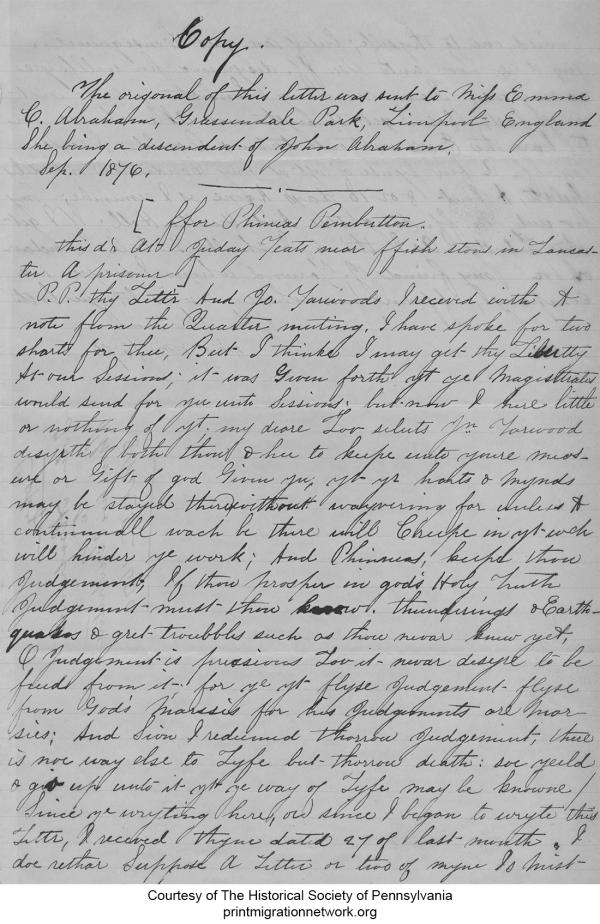 Copy.
The origonal of this letter was sent to Miss Emma
C. Abraham, Grassendale Park, Liverpool England
She, being a descendent of John Abraham.
Sep. 1876.
[ ffor Phineas Pemberton.
this d'r At Juday Yeats near ffish ston in Lancas-
ter A prisoner ]
P. P. thy Lettr And Jo. Yarwoods I receved with A
note from the Quarter meting. I have spoke for two
sharts for thee, But I thinke I may get thy Libertty
At our Sessions; it was Given forth yt ye Magistrates
would send for yu unto Sessions. but now I here little
or nothing of yt. my deare Lov seluts Jn Yarwood
desyrth both thou & hee to keepe unto youre meas-
ure or Gift of god Given yu, yt yr harts & mynds
may be stayed there without wayvering for unless A
continuuall wach be there will Creepe in yt wch
will hinder ye work; And Phinneas, keepe thou
Judgement, If thou prosper in gods Holy Truth
Judgement must thou know. thunderings & Earth-
quakes & gret troubbles such as thou nevar knew yet,
O Judgement is pressious Lov it nevar desyre to be
freed from it, for ye yt flyse Judgement flyse
from Gods Marssies for his Judgements are Mar-
sies; And Sion I redeemed thorrow Judgement, there
is noe way else to Lyfe but thorrow death: soe yeild
& give up unto it yt ye way of Lyfe may be knowne /
Since ye wryting here, or since I began to wryte this
Lettr, I receved thyne datd 27 of last month. I
doe rethar suppose A Lettr or two of myne Is mist-
Courtesy of The Historical Society of Pennsylvania
printmigrationnetwork.org